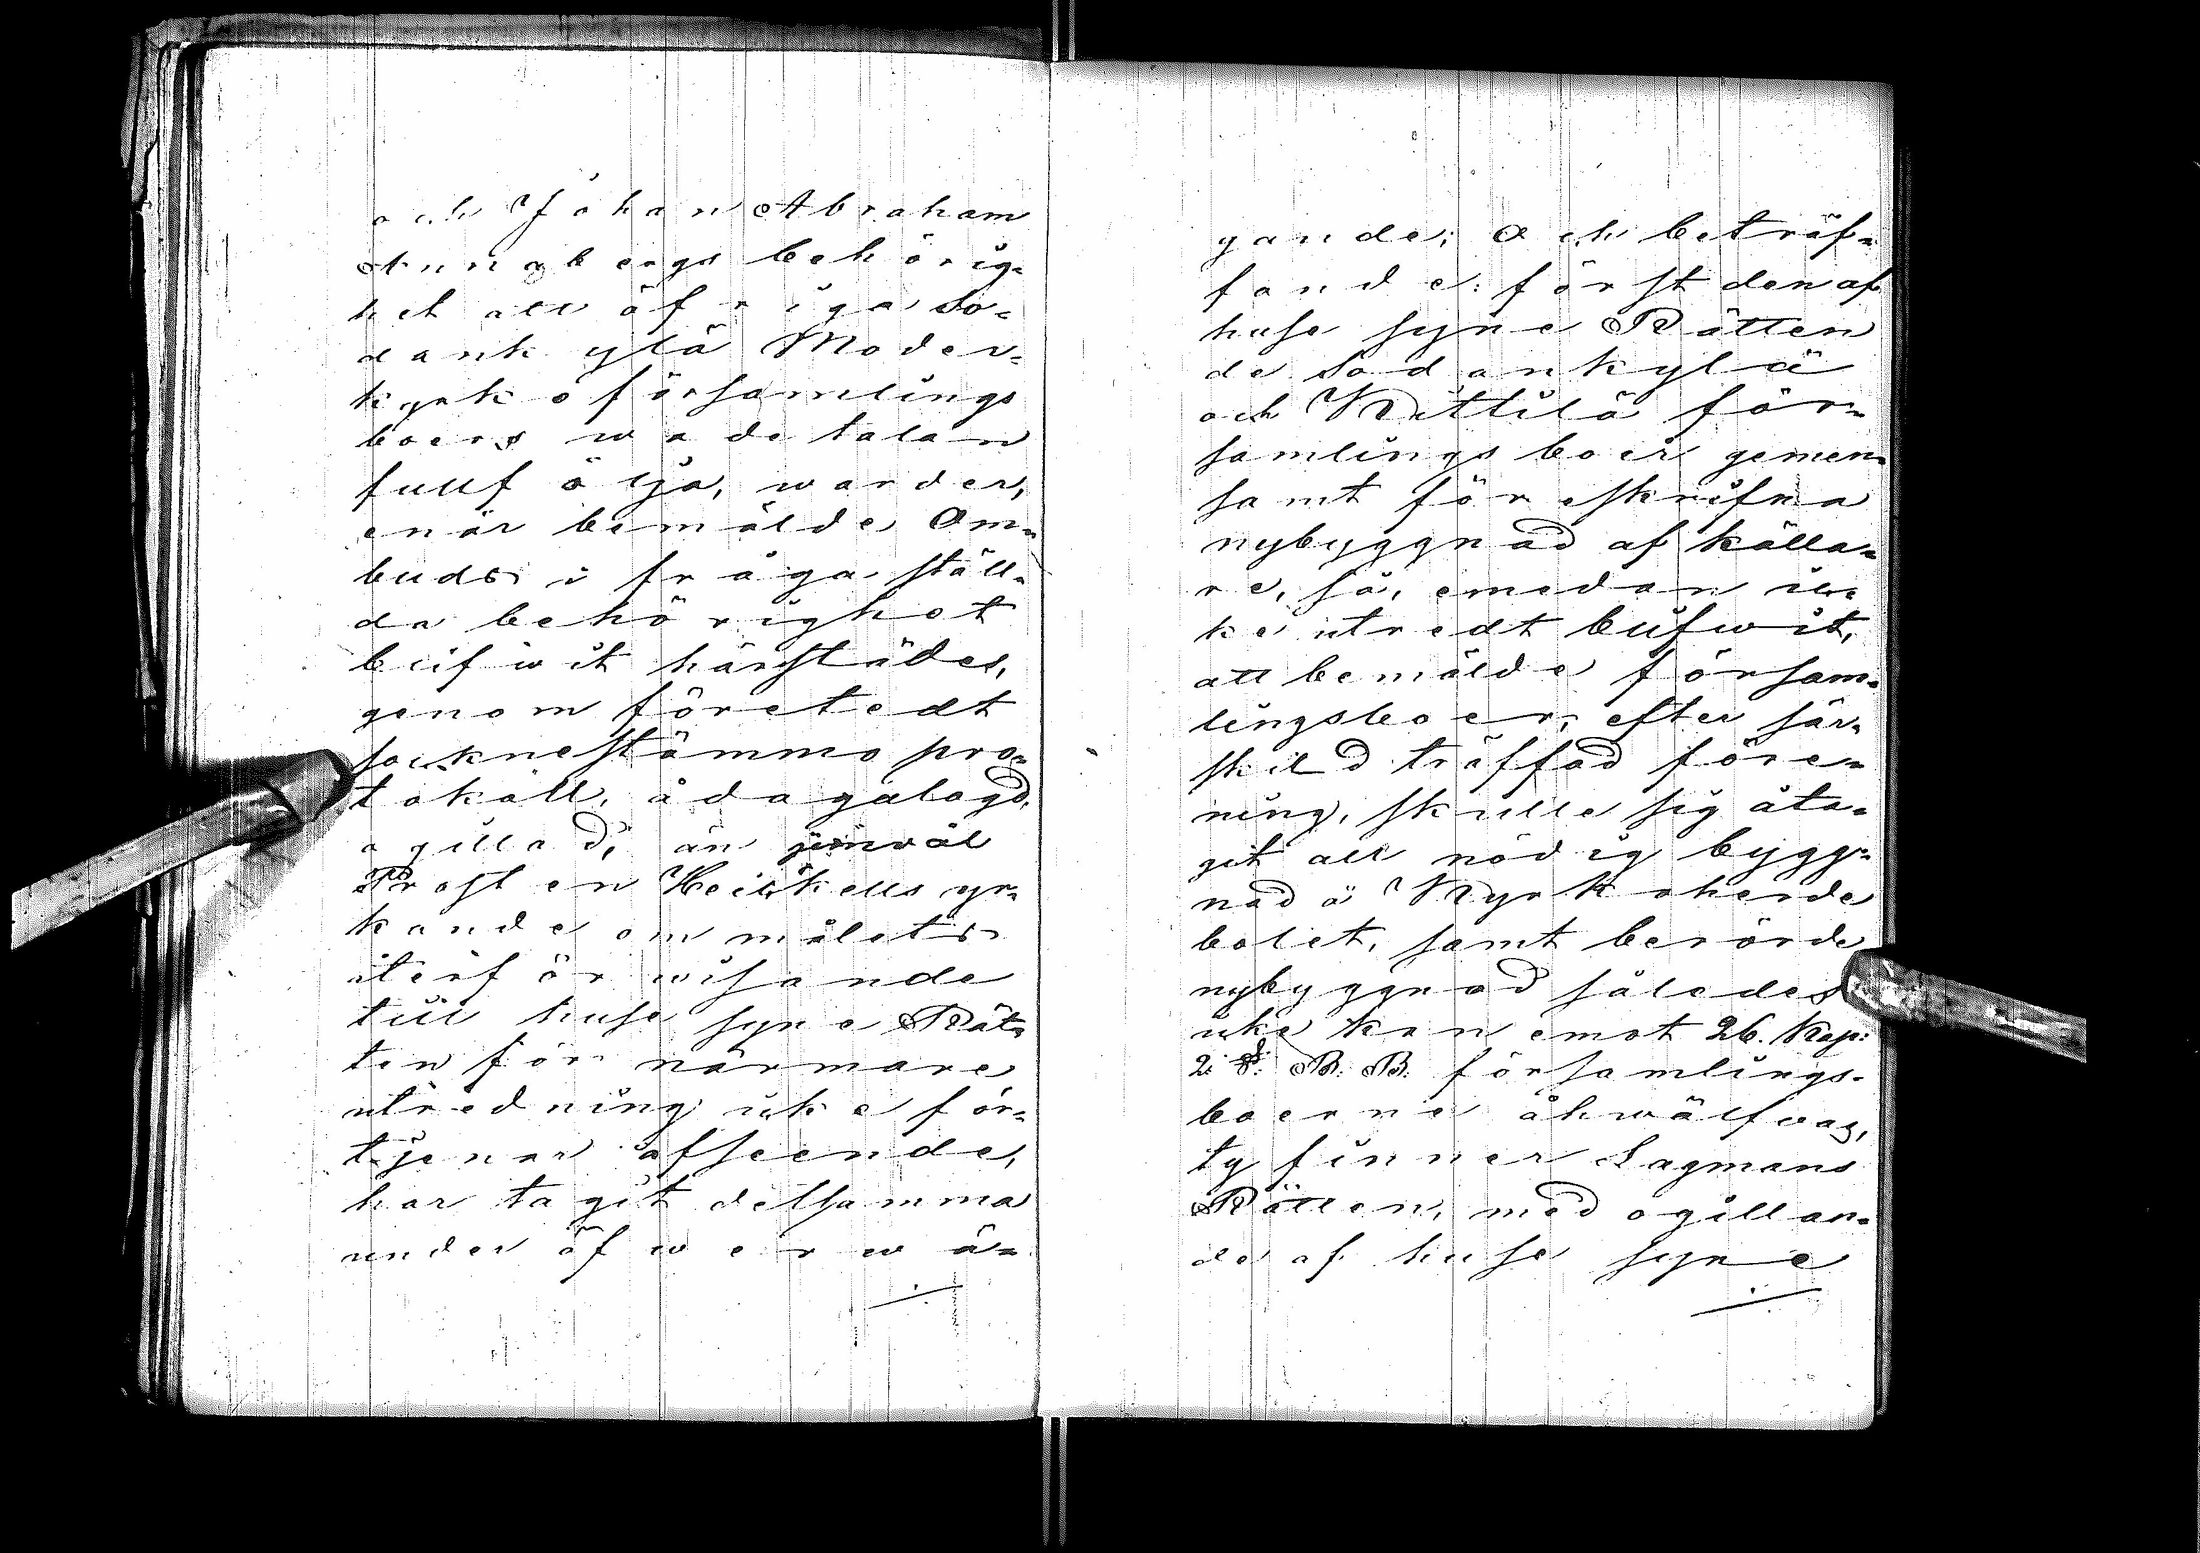 och Johan Abraham
Annabergs behörig-
het att öfriga So-
dankylä Moder-
kyrkoförsamlings
boers wade talan
fullfölja, warder,
enär bemälde Om-
buds i fråga ställ-
da behörighet
blifwit härstädes,
genom företedt
socknestämmo pro-
tokoll, ådagalagd,
ogillad; än jemwäl
Prosten Heikells yr-
kande om målets
återförwisande
till huse syne Rät-
ten för närmare
utredning icke för-
tjenar afseende,
har tagit detsamma
under öfwerwä-
gande; Och beträf-
fande: först den af
huse syne Rätten
de Sodankylä
och Kittilä för-
samlingsboer gemen-
samt föreskrifna
nybyggnad af källa-
re, så, emedan ic-
ke utredt blifwit,
att bemälde försam-
lingsboer, efter sär-
skild träffad före-
ning, skulle sig åta-
git all nödig bygg-
nad å Kyrkoherde
bolet, samt berörde
nybyggnad således
icke kan emot 26. Kap:
2. §. B. B. församlings-
boerne åhwälfwas,
ty finner Lagmans
Rätten, med ogillan-
de af huse syne